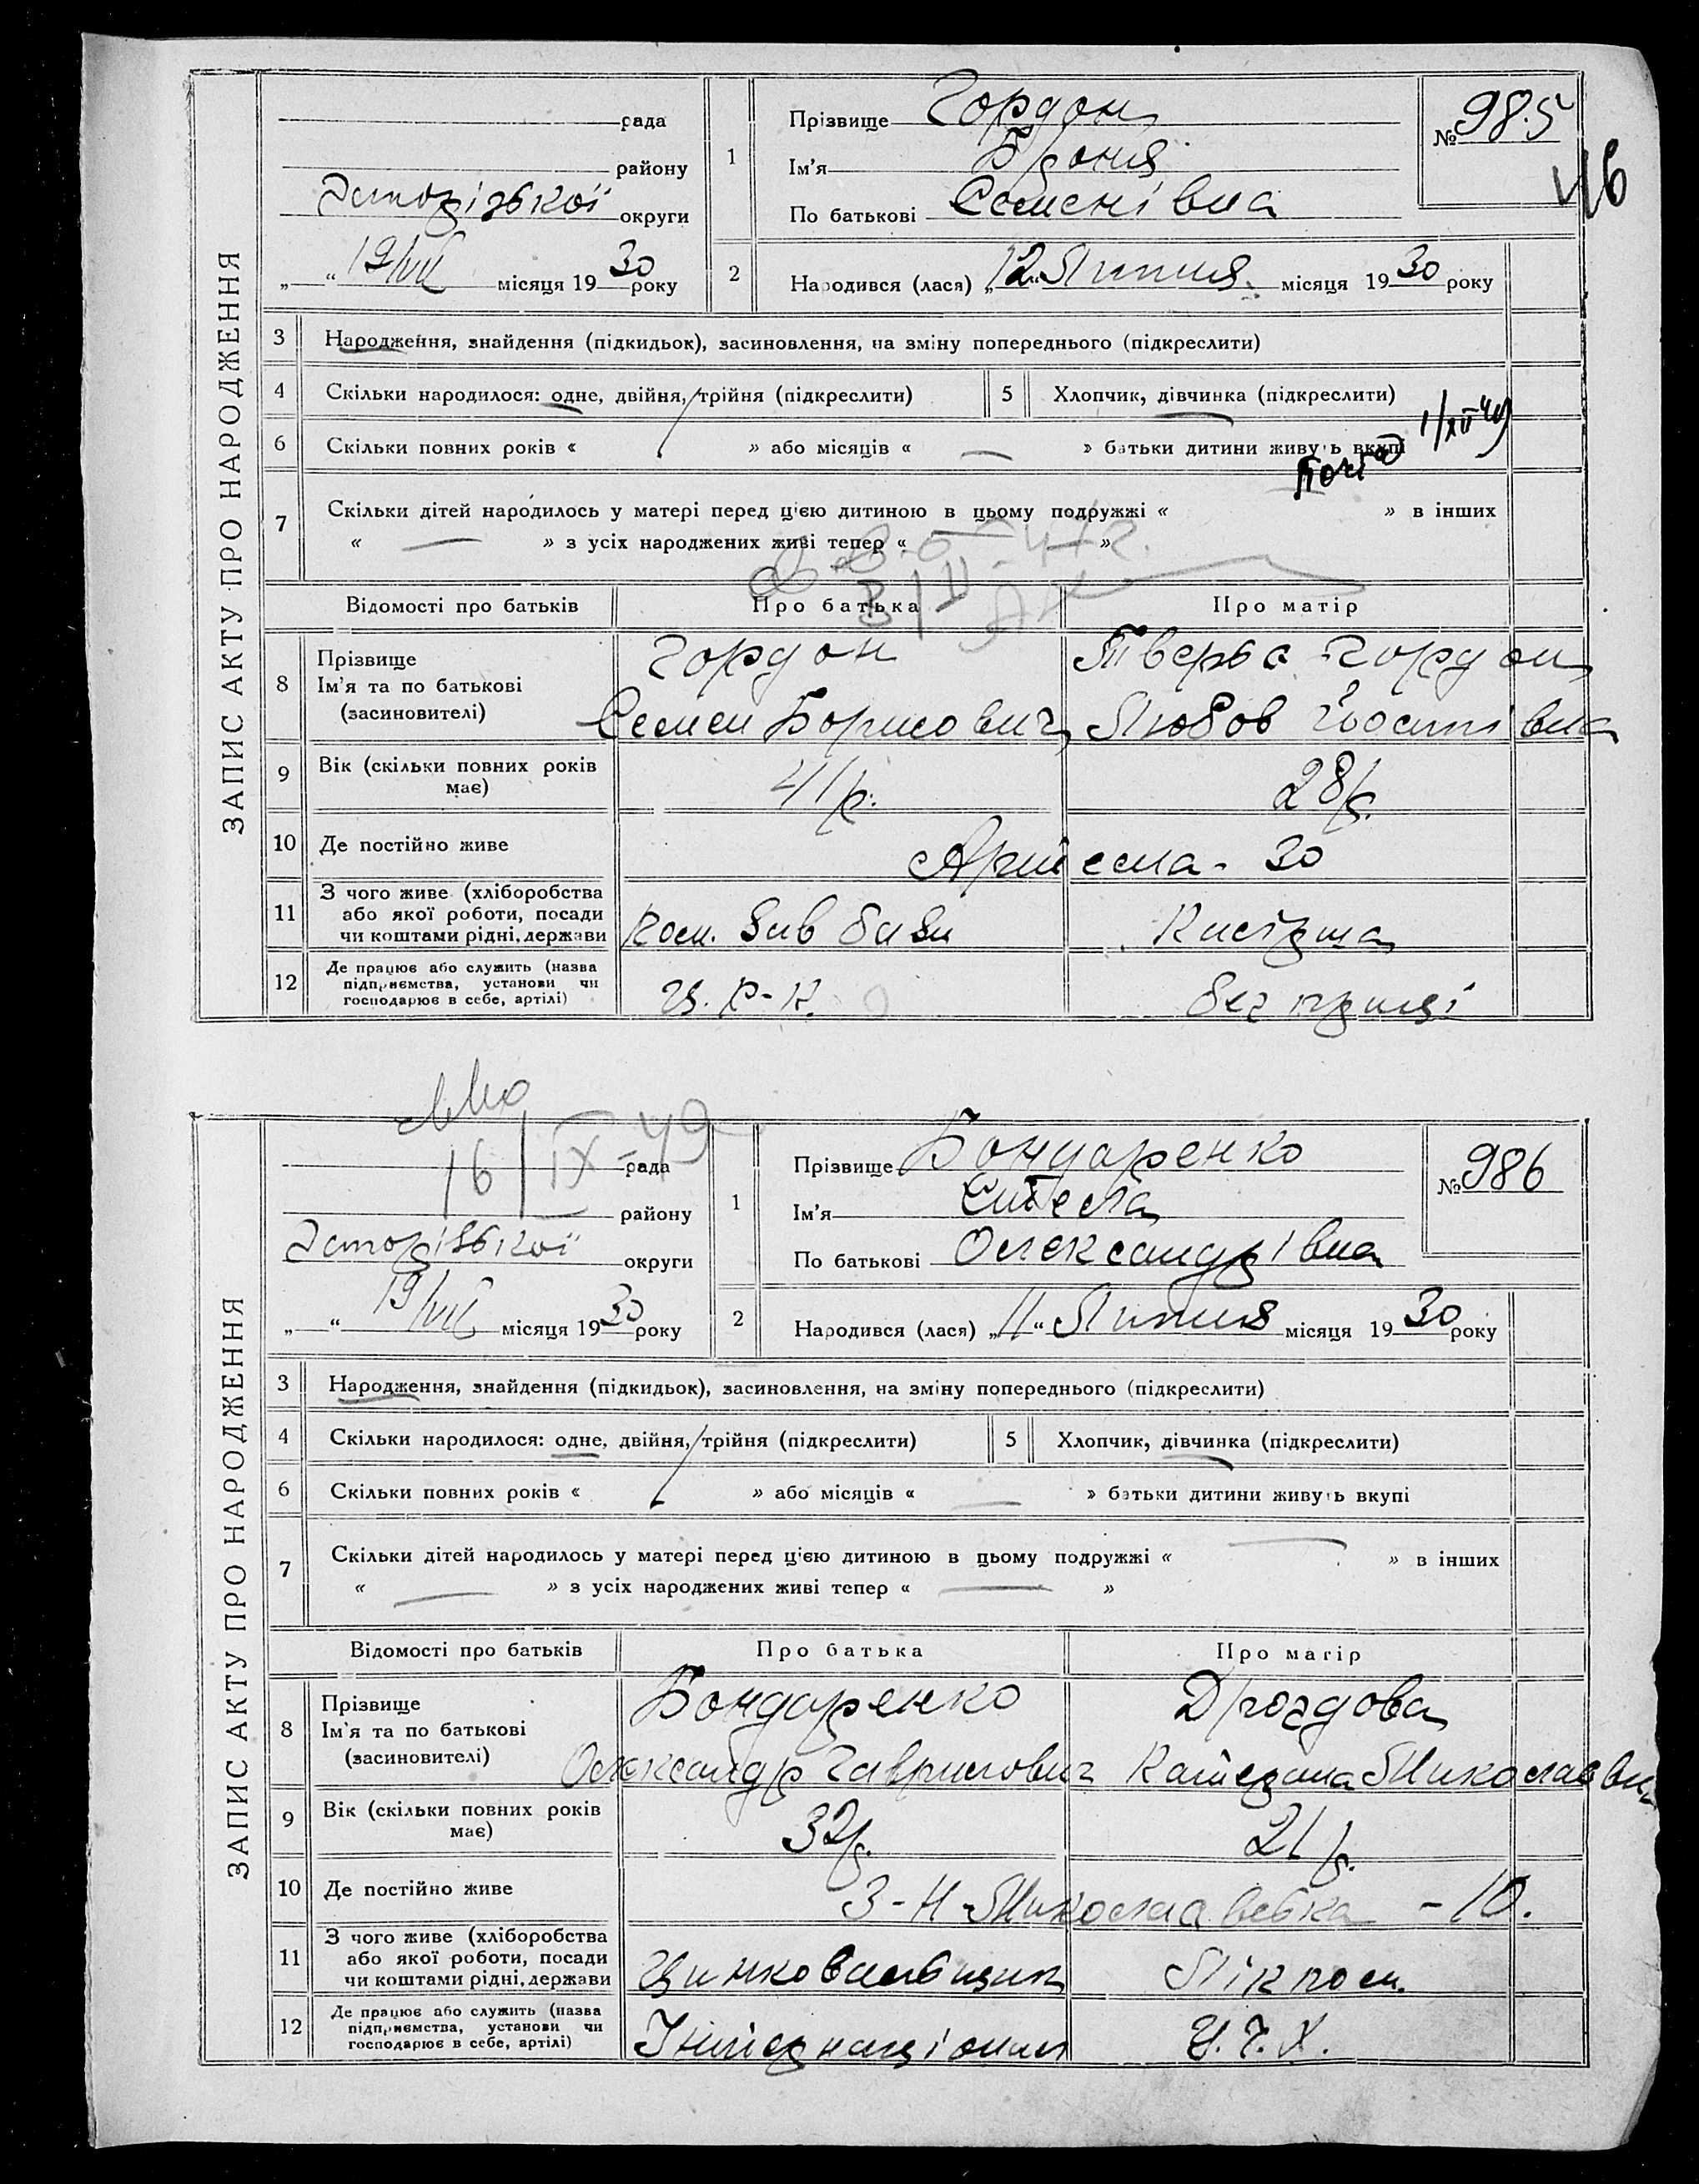 ЗАПИС АКТУ ПРО НАРОДЖЕННЯ
рада
району
округи
„ “ 19/VII місяця 1930 року
1
Прізвище Гордон
Ім'я Броня
По батькові Семенівна
№ 985
46
2
Народився (лася) „12“ Липня місяця 1930 року
3 Народження, знайдення (підкидьок), засиновлення, на зміну попереднього (підкреслити)
4 Скільки народилося: одне, двійня, трійня (підкреслити)
5 Хлопчик, дівчинка (підкреслити)
6 Скільки повних років « » або місяців « — » батьки дитини живуть вкупі
7 Скільки дітей народилось у матері перед цією дитиною в цьому подружжі « » в інших
« — » з усіх народжених живі тепер « — »
Відомості про батьків
Про батька
Про матір
8 Прізвище
Ім'я та по батькові
(засиновителі)
Гордон
Семен Борисович
Тверва-Гордон
Любов
9 Вік (скільки повних років
має)
41 р.
28 р.
10 Де постійно живе
Артема - 30
11 З чого живе (хліборобства
або якої роботи, посади
чи коштами рідні, держави
Ком. Зав бази
Касірша
12 Де працює або служить (назва
підприємства, установи чи
господарює в себе, артілі)
Ц. Р-К.
без праці
16/IX-49
ЗАПИС АКТУ ПРО НАРОДЖЕННЯ
рада
району
округи
„ — “ 19/VII місяця 1930 року
1
Прізвище Бондаренко
Ім'я Стела
По батькові Олександрівна
№ 986
2
Народився (лася) „11“ Липня місяця 1930 року
3 Народження, знайдення (підкидьок), засиновлення, на зміну попереднього (підкреслити)
4 Скільки народилося: одне, двійня, трійня (підкреслити)
5 Хлопчик, дівчинка (підкреслити)
6 Скільки повних років « » або місяців « — » батьки дитини живуть вкупі
7 Скільки дітей народилось у матері перед цією дитиною в цьому подружжі « — » в інших
« — » з усіх народжених живі тепер « — »
Відомості про батьків
Про батька
Про матір
8 Прізвище
Ім'я та по батькові
(засиновителі)
Бондаренко
Олександр Гаврилович
Дроздова
Катерина Миколаївна
9 Вік (скільки повних років
має)
32 р.
21 р.
10 Де постійно живе
З-Н-Миколаєвська - 10.
11 З чого живе (хліборобства
або якої роботи, посади
чи коштами рідні, держави
Цинковальщик
Лікпом.
12 Де працює або служить (назва
підприємства, установи чи
господарює в себе, артілі)
Інтернаціонал
Ч.Х.